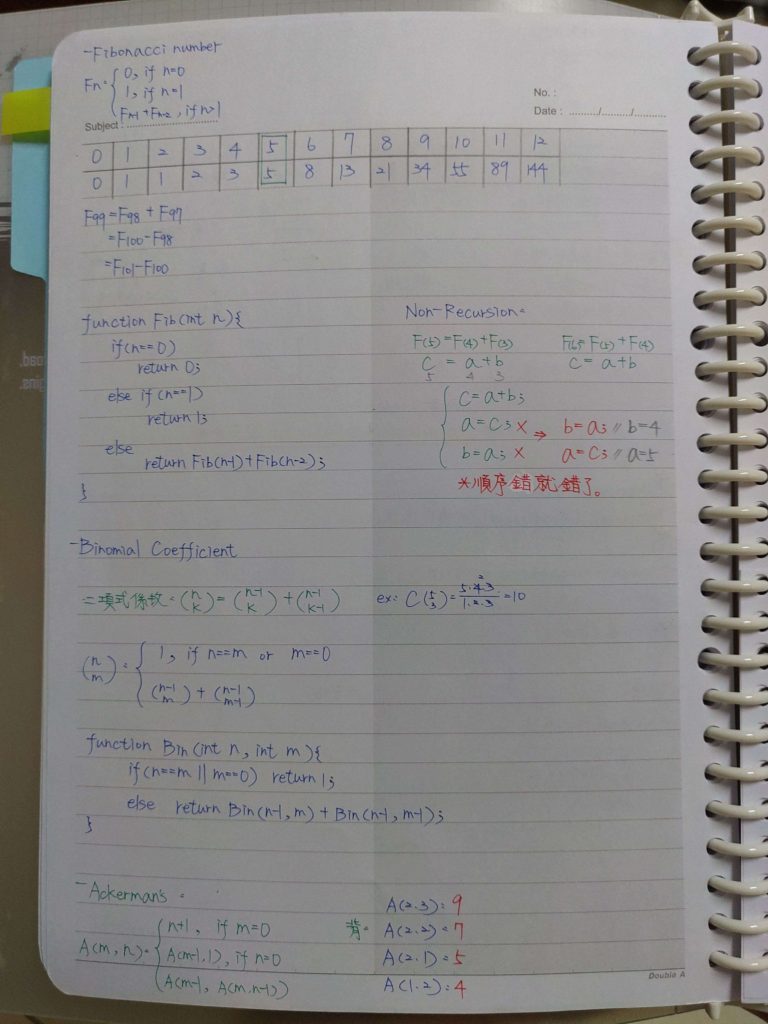 -Fibonacci number
Fn= { 0, if n=0
1, if n=1
Fn-1+Fn-2, if n>1
No. :
Date : ........./........./.........
Subject : ..............................
0 1 2 3 4 5 6 7 8 9 10 11 12
0 1 1 2 3 5 8 13 21 34 55 89 144
F99=F98+F97
=F100-F98
=F101-F100
function Fib(int n){
if(n==0)
return 0;
else if(n==1)
return 1;
else
return Fib(n-1)+Fib(n-2);
}
Non-Recursion=
F(5)=F(4)+F(3) F(6)=F(5)+F(4)
C = a+b C = a+b
5 4 3
{ C=a+b;
a=C; X ⇒ b=a; // b=4
b=a; X a=C; // a=5
*順序錯就錯了。
-Binomial Coefficient
二項式係數=(n K)=(n-1 K)+(n-1 K-1) ex: C(5 3)=5·4·3/1·2·3=10
2
(n m)= { 1, if n==m or m==0
(n-1 m)+(n-1 m-1)
function Bin(int n, int m){
if(n==m || m==0) return 1;
else return Bin(n-1, m)+Bin(n-1, m-1);
}
-Ackerman's =
A(m, n)= { n+1, if m=0
A(m-1, 1), if n=0
A(m-1, A(m, n-1))
背= A(2.3)=9
A(2.2)=7
A(2.1)=5
A(1.2)=4
Double A